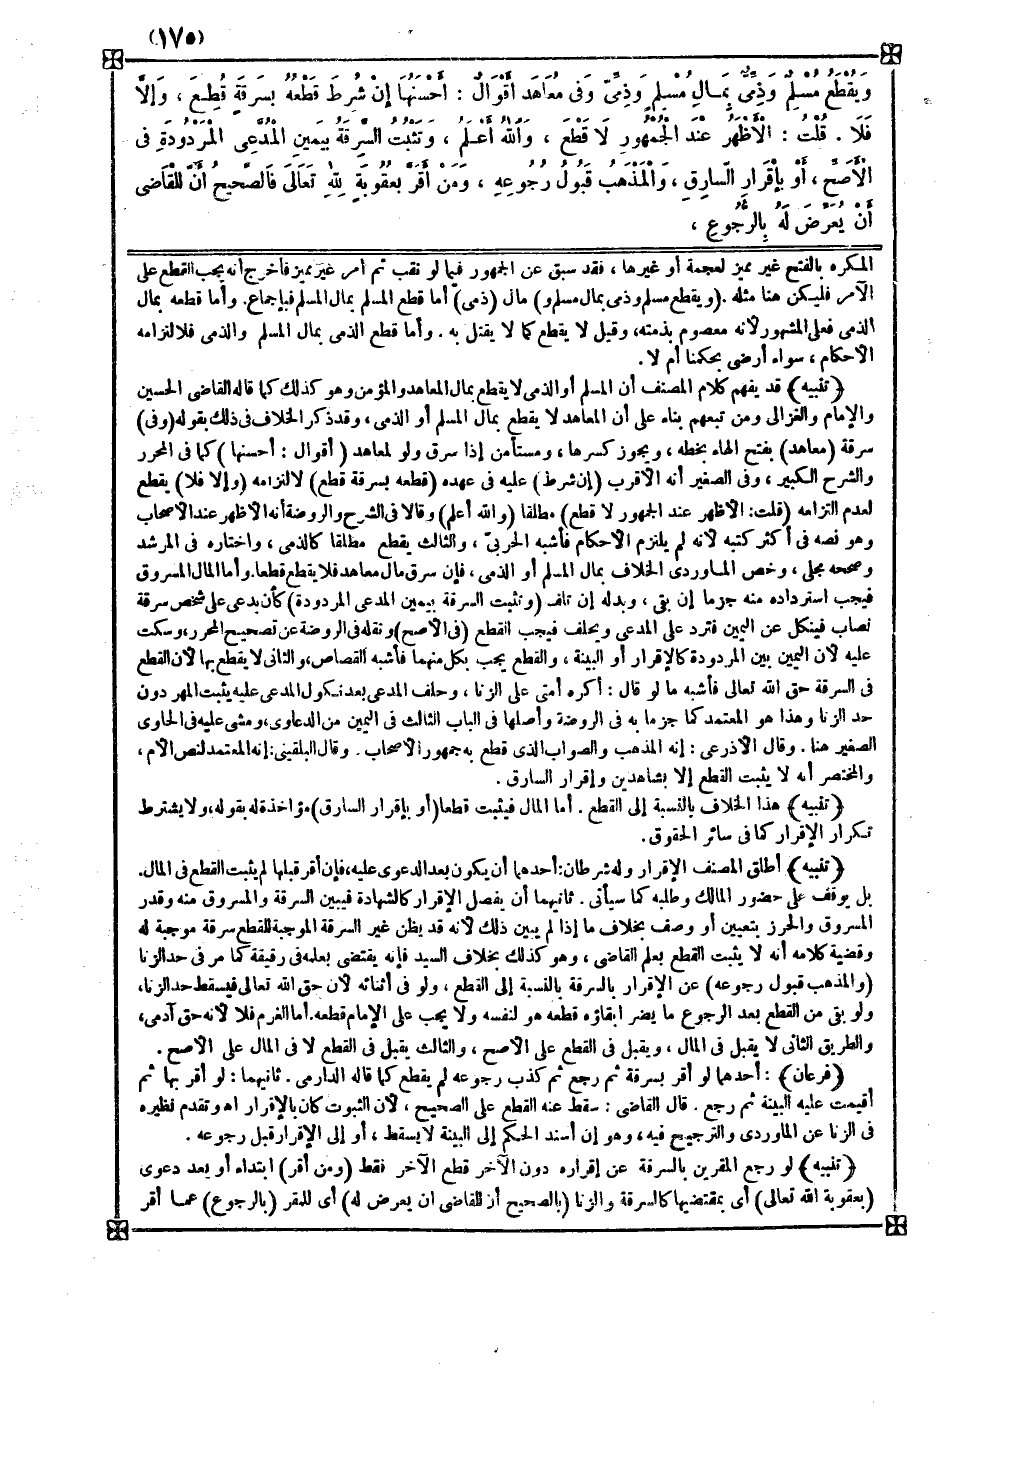 (١٧٥)
وَيُقْطَعُ مُسْلِمٌ وَذِمِّيٌّ بِمَالِ مُسْلِمٍ وَذِمِّيٍّ وَفِى مُعَاهَدٍ أَقْوَالٌ : أَحْسَنُهَا إِنْ شُرِطَ قَطْعُهُ بِسَرِقَةٍ قُطِعَ ، وَإِلَّا
فَلَا . قُلْتُ : الْأَظْهَرُ عِنْدَ الْجُمْهُورِ لَا قَطْعَ ، وَاللهُ أَعْلَمُ ، وَتَثْبُتُ السَّرِقَةُ بِيَمِينِ الْمُدَّعِى الْمَرْدُودَةِ فِى
الْأَصَحِّ ، أَوْ بِإِقْرَارِ السَّارِقِ ، وَالْمَذْهَبُ قَبُولُ رُجُوعِهِ ، وَمَنْ أَقَرَّ بِعُقُوبَةٍ لِلّٰهِ تَعَالَى فَالصَّحِيحُ أَنَّ لِلْقَاضِى
أَنْ يُعَرِّضَ لَهُ بِالرُّجُوعِ ،
المكره بالفتح غير مميز لعجمة أو غيرها ، فقد سبق عن الجمهور فيما لو نقب ثم أمر غير مميز فأخرج أنه يجب القطع على
الآمر فليكن هنا مثله . (ويقطع مسلم وذمى بمال مسلم و) مال (ذمى) أما قطع المسلم بمال المسلم فبإجماع. وأما قطعه بمال
الذمى فعلى المشهور لأنه معصوم بذمته، وقيل لا يقطع كما لا يقتل به . وأما قطع الذمى بمال المسلم والذمى فلالتزامه
الأحكام ، سواء أرضى بحكمنا أم لا .
(تنبيه) قد يفهم كلام المصنف أن المسلم أو الذمى لا يقطع بمال المعاهد والمؤمن وهو كذلك كما قاله القاضى الحسين
والإمام والغزالى ومن تبعهم بناء على أن المعاهد لا يقطع بمال المسلم أو الذمى ، وقد ذكر الخلاف فى ذلك بقوله (وفى)
سرقة (معاهد) بفتح الهاء بخطه ، ويجوز كسرها ، ومستأمن إذا سرق ولو لمعاهد ( أقوال : أحسنها ) كما فى المحرر
والشرح الكبير ، وفى الصغير أنه الأقرب (إن شرط) عليه فى عهده (قطعه بسرقة قطع) لالتزامه (وإلا فلا) يقطع
لعدم التزامه (قلت: الأظهر عند الجمهور لا قطع) مطلقا (والله أعلم) وقالا فى الشرح والروضة أنه الأظهر عند الأصحاب
وهو نصه فى أكثر كتبه لأنه لم يلتزم الأحكام فأشبه الحربىّ ، والثالث يقطع مطلقا كالذمى ، واختاره فى المرشد
وصححه مجلى ، وخص الماوردى الخلاف بمال المسلم أو الذمى ، فإن سرق مال معاهد فلا يقطع قطعا . وأما المال المسروق
فيجب استرداده منه جزما إن بقى ، وبدله إن تلف (وتثبت السرقة بيمين المدعى المردودة) كأن يدعى على شخص سرقة
نصاب فينكل عن اليمين فترد على المدعى ويحلف فيجب القطع (فى الأصح) ونقله فى الروضة عن تصحيح المحرر، وسكت
عليه لأن اليمين بين المردودة كالإقرار أو البينة ، والقطع يجب بكل منهما فأشبه القصاص، والثانى لا يقطع بها لأن القطع
فى السرقة حق الله تعالى فأشبه ما لو قال : أكره أمتى على الزنا ، وحلف المدعى بعد نكول المدعى عليه يثبت المهر دون
حد الزنا وهذا هو المعتمد كما جزما به فى الروضة وأصلها فى الباب الثالث فى اليمين من الدعاوى، ومشى عليه فى الحاوى
الصغير هنا . وقال الأذرعى : إنه المذهب والصواب الذى قطع به جمهور الأصحاب . وقال البلقينى: إنه المعتمد لنص الأم ،
والمختصر أنه لا يثبت القطع إلا بشاهدين وإقرار السارق .
(تنبيه) هذا الخلاف بالنسبة إلى القطع . أما المال فيثبت قطعا (أو بإقرار السارق) مؤاخذة له بقوله، ولا يشترط
تكرار الإقرار كما فى سائر الحقوق .
(تنبيه) أطلق المصنف الإقرار وله شرطان: أحدهما أن يكون بعد الدعوى عليه، فإن أقر قبلها لم يثبت القطع فى المال.
بل يوقف على حضور المالك وطلبه كما سيأتى . ثانيهما أن يفصل الإقرار كالشهادة فيبين السرقة والمسروق منه وقدر
المسروق والحرز بتعيين أو وصف بخلاف ما إذا لم يبين ذلك لأنه قد يظن غير السرقة الموجبة للقطع سرقة موجبة له
وقضية كلامه أنه لا يثبت القطع بعلم القاضى ، وهو كذلك بخلاف السيد فإنه يقتضى بعلمه فى رقيقه كما مر فى حد الزنا
(والمذهب قبول رجوعه) عن الإقرار بالسرقة بالنسبة إلى القطع ، ولو فى أثنائه لأن حق الله تعالى فيسقط حد الزنا،
ولو بقى من القطع بعد الرجوع ما يضر ابقاؤه قطعه هو لنفسه ولا يجب على الإمام قطعه. أما الغرم فلا لأنه حق آدمى،
والطريق الثانى لا يقبل فى المال ، ويقبل فى القطع على الأصح ، والثالث يقبل فى القطع لا فى المال على الأصح .
(فرعان) : أحدهما لو أقر بسرقة ثم رجع ثم كذب رجوعه لم يقطع كما قاله الدارمى . ثانيهما : لو أقر بها ثم
أقيمت عليه البينة ثم رجع . قال القاضى : سقط عنه القطع على الصحيح ، لأن الثبوت كان بالإقرار اه وتقدم نظيره
فى الزنا عن الماوردى والترجيح فيه، وهو إن أسند الحكم إلى البينة لا يسقط ، أو إلى الإقرار قبل رجوعه .
(تنبيه) لو رجع المقرين بالسرقة عن إقراره دون الآخر قطع الآخر فقط (ومن أقر) ابتداء أو بعد دعوى
(بعقوبة الله تعالى) أى بمقتضيها كالسرقة والزنا (بالصحيح أن للقاضى ان يعرض له) أى للمقر (بالرجوع) عما أقر